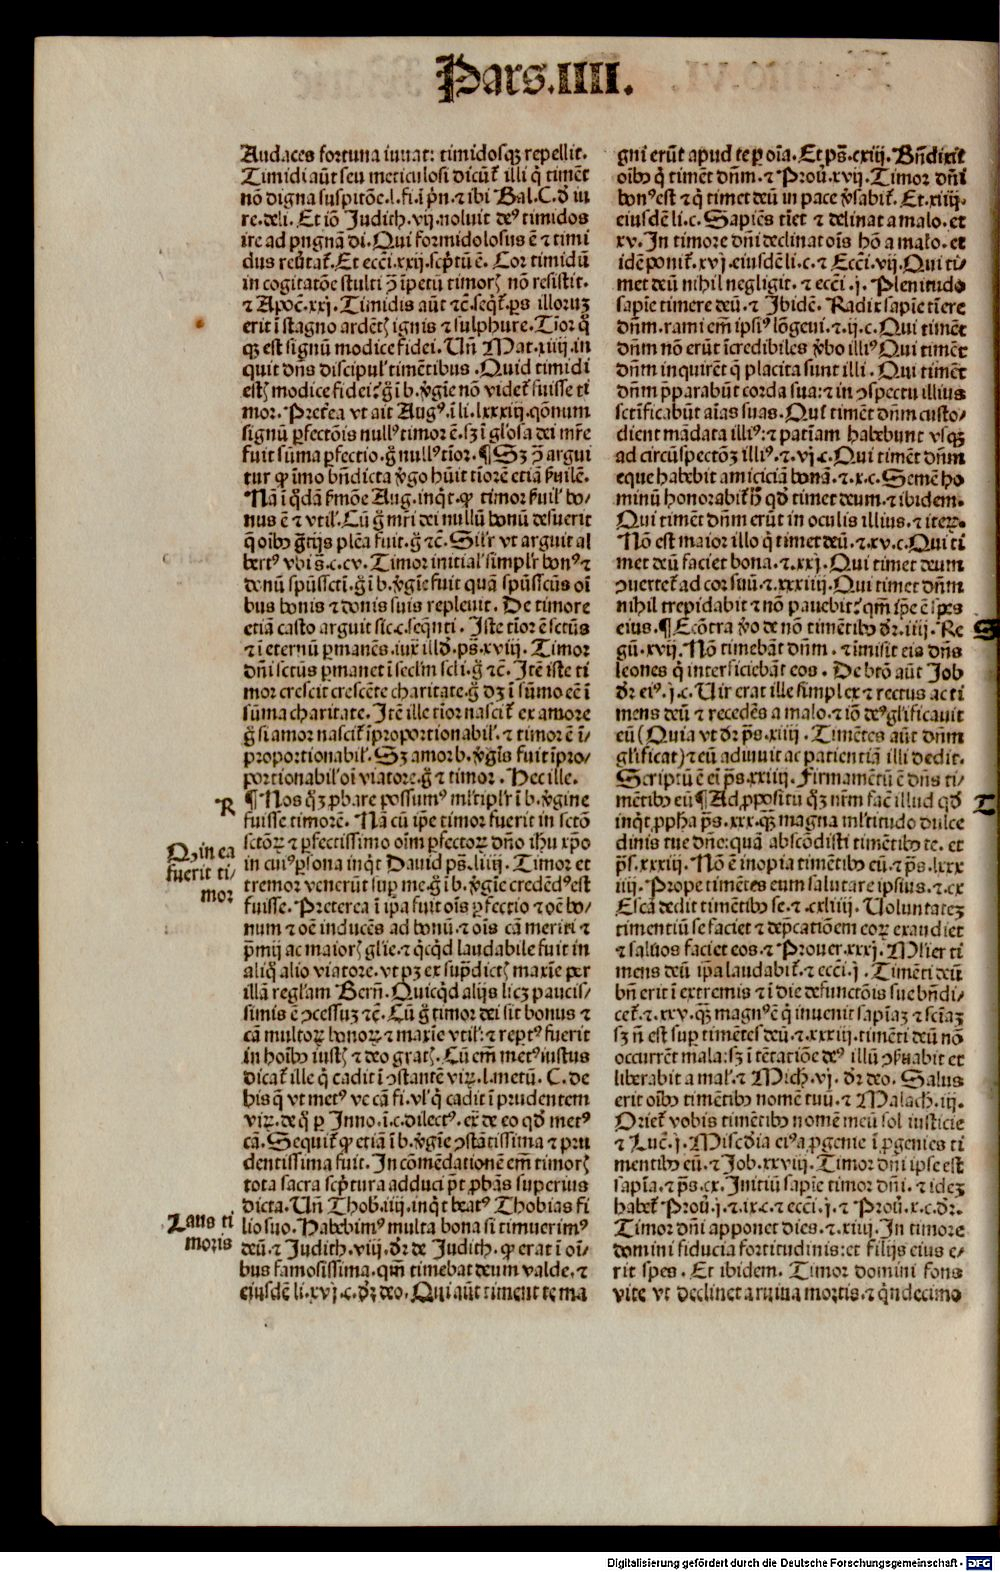 Pars.IIII.
Audaces fortuna iuuat: timidosqȝ repellit.
Timidi aūt seu meticulosi dicūt̄ illi q̄ timēt
nō digna suspitōe.l.fi.ī p̄n.⁊ ibi Bal.C.ð iu
re.deli. Et iō Judith.vij.noluit deꝰ timidos
ire ad pngnā di. Qui formidolosus ē ⁊ timi
dus reūtat̄. Et ecci.xxij.scp̄tū ē. Cor timidū
in cogitatōe stulti ꝯ īpetū timoꝝ nō resistit.
⁊ Apoc̄.xxj. Timidis aūt ⁊c̄.seqt̄.ps illoruȝ
erit ī stagno ardēt ignis ⁊ sulphure. Tīor q̄
qȝ est signū modice fidei. Uñ Mat.xiiij.in
quit dn̄s discipul' timētibus. Quid timidi
est modice fidei? g̊ ī b. v̄gīe nō videt̄ fuisse ti
mor. Preterea vt ait Augꝰ.ī li.lxxxiij.qōnum
signū ꝑfectōis nullꝰ timor ē. sȝ ī glosa dei mr̄e
fuit sūma ꝑfectio. g̊ nullꝰ tīor. ¶ Sȝ ꝯ argui
tur ꝙ imo bn̄dicta v̄go hūit tīorē etiā ẜuilē.
Nā ī q̄dā ẜmōe Aug.inq̄t. ꝙ timor ẜuil' bo⸗
nus ē ⁊ vtil'. Cū g̊ mr̄i dei nullū bonū defuerit
q̄ oībꝰ gr̄tijs plēa fuit. g̊ ⁊c̄. Sil'r vt arguit al
bertꝰ vbi s̄.c.cv. Timor initial' simpl'r bonꝰ ⁊
donū spūssctī. g̊ ī b. v̄gīe fuit quā spūsscūs oī
bus bonis ⁊ donis suis repleuit. De timore
etiā casto arguit sic.c.seqn̄ti. Iste tīor ē sctūs
⁊ ī eternū ꝑmanēs. iux̄ illð.ps̄.xviij. Timor
dn̄i sctūs ꝑmanet ī seclm̄ scli. g̊ ⁊c̄. Itē iste ti
mor crescit crescēte charitate. g̊ dȝ ī sūmo eē ī
sūma charitate. Itē ille tīor nascit̄ ex amore
g̊ si amor nascit̄ īproportionabil'. ⁊ timor ē ī⸗
proportionabil'. Sȝ amor b. v̄gīs fuit īpro⸗
portionabil' oī viatore. g̊ ⁊ timor. Hec ille.
¶ Nos q̄ȝ ꝓbare possumꝰ ml'tipl'r ī b. v̄gine
fuisse timorē. Nā cū ip̄e timor fuerit in sctō
sctōꝝ ⁊ ꝑfectissimo oīm ꝑfectoꝝ dn̄o ihū xp̄o
in cuiꝰ ꝑsona inq̄t Dauid ps̄.liiij. Timor et
tremor venerūt suꝑ me. g̊ ī b. v̄gīe credēdꝰ est
fuisse. Preterea ī ip̄a fuit oīs ꝑfectio ⁊ oē bo⸗
num ⁊ oē inducēs ad bonū. ⁊ oīs cā meriti ⁊
p̄mij ac maioꝝ gl'ie. ⁊ q̄cq̄d laudabile fuit in
aliq̄ alio viatore. vt pȝ ex sup̄dict maxīe per
illā regl'am Bern̄. Quicq̄d alijs licȝ paucis⸗
simis ē ꝯcessuȝ ⁊c̄. Cū g̊ timor dei sit bonus ⁊
cā multoꝝ bonoꝝ ⁊ maxīe vtil'. ⁊ reptꝰ fuerit
in hoībꝰ iust ⁊ deo grat. Cū em̄ metꝰ iustus
dicat̄ ille q̄ cadit ī ꝯstantē viꝝ.l.metū. C. de
his q̄ vt metꝰ ve cā fi. vl' q̄ cadit ī prudentem
viꝝ. de q̄ ꝑ Inno.ī.c.dilectꝰ. ex̄ de eo qð metꝰ
cā. Sequit̄ ꝙ etiā ī b. v̄gīe ꝯstātissima ⁊ pru
dentissima fuit. In cōmēdationē em̄ timoꝝ
tota sacra scp̄tura adduci p̄t ꝓbās superius
dicta. Uñ Thob.iiij.inq̄t beatꝰ Thobias fi
lio suo. Habebimꝰ multa bona si timuerimꝰ
deū. ⁊ Judith.viij. ðr de Judith. ꝙ erat ī oī⸗
bus famosissima. qm̄ timebat deum valde. ⁊
eiusdē li.xvj.c. ðr deo. Qui aūt timent te ma
R
Q̇ in ea
fuerit ti⸗
mor
Laus ti
moris
gni erūt apud te ꝑ oīa. Et ps̄.cxiij. Bn̄dixit
oībꝰ q̄ timēt dn̄m. ⁊ Prou̇.xvij. Timor dn̄i
bonꝰ est ⁊ q̄ timet deū in pace v̄sabit̄. Et.xiiij.
eiusdē li.c. Sapiēs tīet ⁊ delinat a malo. et
xv. In timore dn̄i declinat oīs hō a malo. et
idē ponit̄.xvj.eiusdē li.c. ⁊ Ecci.vij. Qui ti⸗
met deū nihil negligit. ⁊ ecci.j. Plenitudo
sapīe timere deū. ⁊ Ibidē. Radix sapīe tīere
dn̄m. rami em̄ ipsiꝰ lōgeui. ⁊.ij.c. Qui timēt
dn̄m nō erūt īcredibiles v̄bo illiꝰ Qui timēt
dn̄m inquirēt q̄ placita sunt illi. Qui timēt
dn̄m p̄parabūt corda sua: ⁊ in ꝯspectu illius
sctīficabūt aīas suas. Qui timēt dn̄m custo⸗
dient mādata illiꝰ: ⁊ patiam habebunt vsqȝ
ad circūspectōȝ illiꝰ. ⁊.vj.c. Qui timēt dn̄m
eque habebit amiciciā bonā. ⁊.x.c. Semē ho
minū honorabit̄ h̄ qð timet deum. ⁊ ibidem.
Qui timēt dn̄m erūt in oculis illius. ⁊ iteꝝ.
Nō est maior illo q̄ timet deū. ⁊.xv.c. Qui ti
met deū faciet bona. ⁊.xxj. Qui timet deum
ꝯuertet̄ ad cor suū. ⁊.xxxiiij. Qui timet dn̄m
nihil trepidabit ⁊ nō pauebit: qm̄ ip̄e ē spes
eius. ¶ Ecōtra v̄o de nō timētibꝰ ðr.iiij. Re
gū.xvij. Nō timebāt dn̄m. ⁊ īmisit eis dn̄s
leones q̄ interficiebāt eos. De btō aūt Job
ðr eiꝰ.j.c. Uir erat ille simplex ⁊ rectus ac ti
mens deū ⁊ recedēs a malo. ⁊ iō deꝰ gl'ificauit
eū (Quia vt ðr ps̄.xiiij. Timētes aūt dn̄m
gl'ificat) ⁊ eū adiuuit ac patientiā illi dedit.
Scriptū ē em̄ ps̄.xxiiij. Firmamētū ē dn̄s ti⸗
mētibꝰ eū ¶ Ad ꝓpositū q̄ȝ nr̄m facit illud qð
inq̄t ꝓpha ps̄.xxx. qȝ̄ magna ml'titudo dulce
dinis tue dn̄e: quā abscōdisti timētibꝰ te. et
ps̄.xxxiij. Nō ē inopia timētibꝰ eū. ⁊ ps̄.lxxx
iiij. Prope timētes eum salutare ipsius. ⁊.cx
Escā dedit timētibꝰ se. ⁊.cxliiij. Uoluntateȝ
timentiū se faciet ⁊ dep̄catiōem eoꝝ exaudiet
⁊ saluos faciet eos. ⁊ Prouer.xxxj. Ml'ier ti
mens deū ip̄a laudabit̄. ⁊ ecci.j. Timēti deū
bn̄ erit ī extremis ⁊ ī die defunctōis sue bn̄di⸗
cet̄. ⁊.xxv. qȝ̄ magnꝰ ē q̄ inuenit sapīaȝ ⁊ scīaȝ
sȝ n̄ est suꝑ timētes deū. ⁊.xxxiij. timēti deū nō
occurrēt mala: sȝ ī tētatiōe deꝰ illū ꝯẜuabit et
liberabit a mal'. ⁊ Mich.vj. ðr deo. Salus
erit oībꝰ timētibꝰ nomē tuū. ⁊ Malach.iij.
Oriet̄ vobis timētibꝰ nomē meū sol iusticie
⁊ Luc̄.j. Misc̄dia eiꝰ a ꝓgenie ī ꝓgenies ti
mentibꝰ eū. ⁊ Job.xxviij. Timor dn̄i ipse est
sapīa. ⁊ ps̄.cx. Initiū sapīe timor dn̄i. ⁊ ideȝ
habet̄ Prou̇.j. ⁊.ix.c. ⁊ ecci.j. ⁊ Prou̇.x.c. ðr.
Timor dn̄i apponet dies. ⁊.xiiij. In timore
domini fiducia fortitudinis: et filijs eius e⸗
rit spes. Et ibidem. Timor domini fons
vite vt declinet a ruina mortis. ⁊ q̄ndecimo
S
T
Digitalisierung gefördert durch die Deutsche Forschungsgemeinschaft - DFG